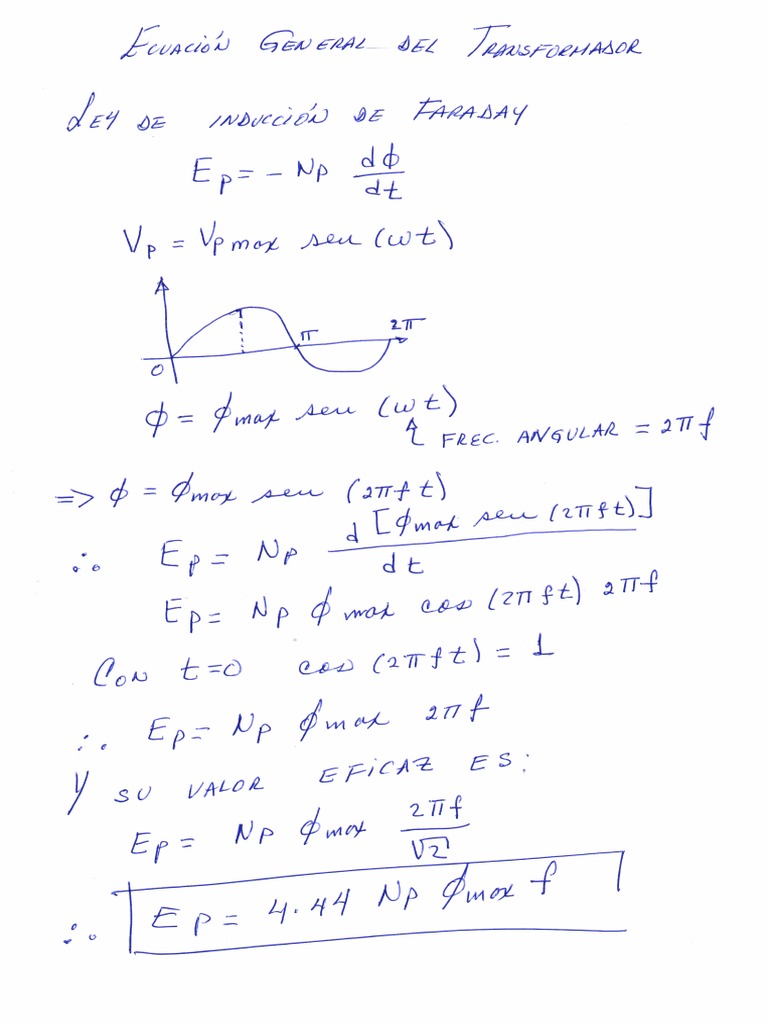 ECUACIÓN GENERAL DEL TRANSFORMADOR
LEY DE INDUCCIÓN DE FARADAY
Ep = - Np dϕ/dt
Vp = Vpmax sen (ωt)
0 π 2π
ϕ = ϕmax sen (ωt)
FREC. ANGULAR = 2πf
=> ϕ = ϕmax sen (2πft)
∴ Ep = Np d[ϕmax sen (2πft)]/dt
Ep = Np ϕmax cos (2πft) 2πf
CON t=0 cos (2πft) = 1
∴ Ep = Np ϕmax 2πf
Y SU VALOR EFICAZ ES:
Ep = Np ϕmax 2πf/√2
∴ Ep = 4.44 Np ϕmax f